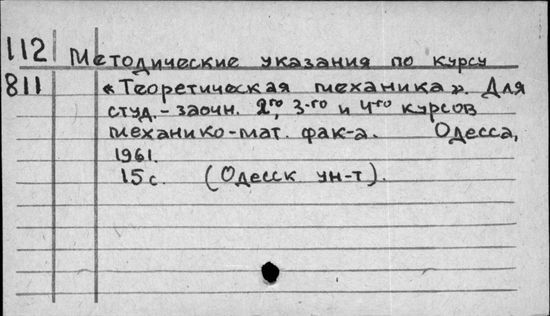 112 Методические указания по курсу
811 «Теоретическая механика». Для
студ.-заочн. 2го, 3-го и 4го курсов
механико-мат. фак-а. Одесса,
1961.
15с. (Одесск ун-т).